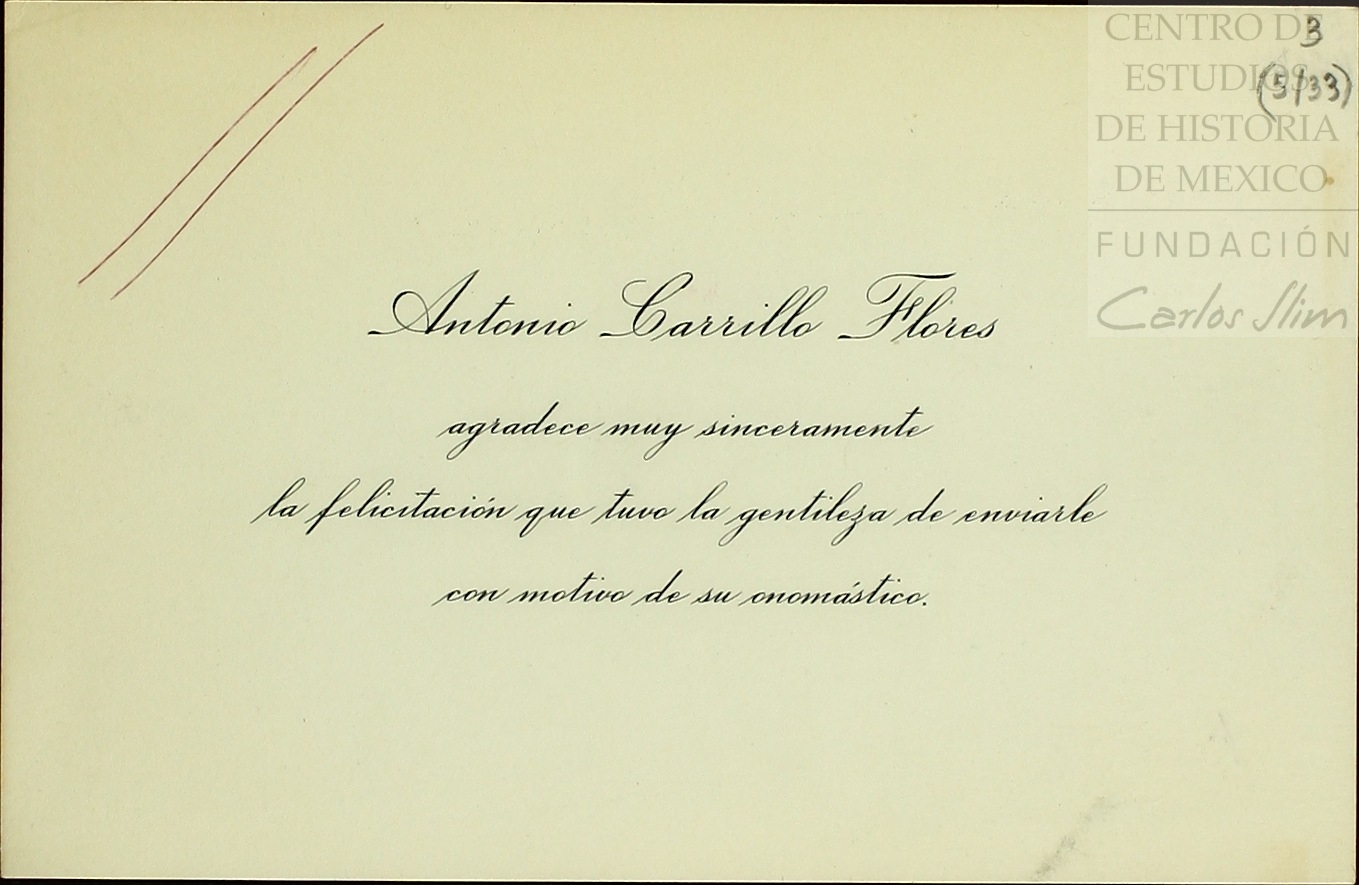 CENTRO DE
ESTUDIOS
DE HISTORIA
DE MEXICO
FUNDACIÓN
Carlos Slim
3
(5/33)
Antonio Carrillo Flores
agradece muy sinceramente
la felicitación que tuvo la gentileza de enviarle
con motivo de su onomástico.